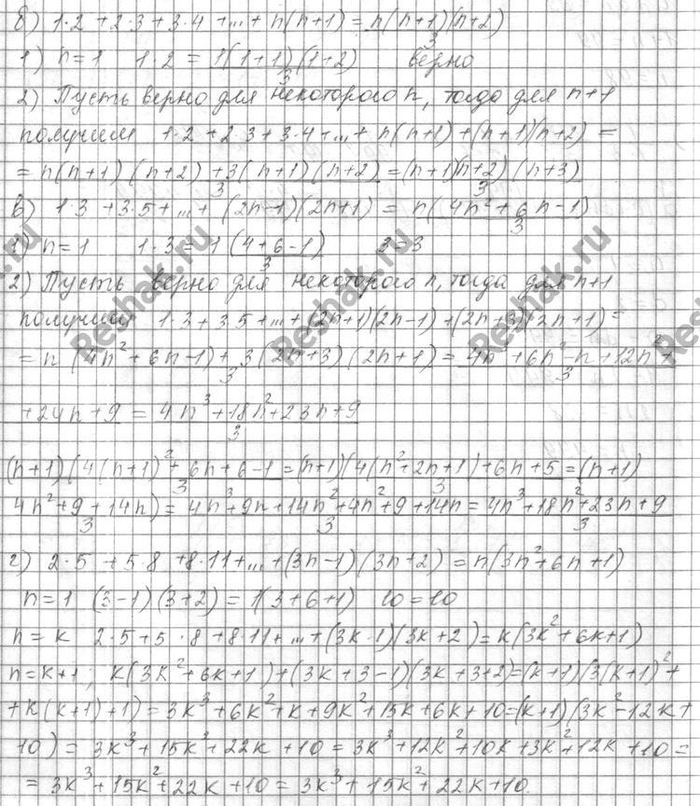 б) 1·2 + 2·3 + 3·4 + ... + n(n+1) = n(n+1)(n+2)/3
1) n=1 1·2 = 1(1+1)(1+2)/3 верно
2) Пусть верно для некоторого n, тогда для n+1
получим 1·2 + 2·3 + 3·4 + ... + n(n+1) + (n+1)(n+2) =
= n(n+1)(n+2) + 3(n+1)(n+2)/3 = (n+1)(n+2)(n+3)/3
в) 1·3 + 3·5 + ... + (2n-1)(2n+1) = n(4n²+6n-1)/3
1) n=1 1·3 = 1(4+6-1)/3 3=3
2) Пусть верно для некоторого n, тогда для n+1
получим 1·3 + 3·5 + ... + (2n+1)(2n-1) + (2n+3)(2n+1) =
= n(4n²+6n-1) + 3(2n+3)(2n+1)/3 = 4n³+6n²-n+12n²+
+24n+9/3 = 4n³+18n²+23n+9/3
(n+1)(4(n+1)²+6n+6-1/3 = (n+1)(4(n²+2n+1)+6n+5/3 = (n+1)
4n²+9+14n)/3 = 4n³+9n+14n²+4n²+9+14n/3 = 4n³+18n²+23n+9/3
г) 2·5 + 5·8 + 8·11 + ... + (3n-1)(3n+2) = n(3n²+6n+1)
n=1 (3-1)(3+2) = 1(3+6+1) 10=10
n=k 2·5 + 5·8 + 8·11 + ... + (3k-1)(3k+2) = k(3k²+6k+1)
n=k+1; k(3k²+6k+1)+(3k+3-1)(3k+3+2)=(k+1)(3(k+1)²+
+k(k+1)+1) = 3k³+6k²+k+9k²+15k+6k+10=(k+1)(3k²-12k+
10) = 3k³+15k²+22k+10 = 3k³+12k²+10k+3k²+12k+10 =
= 3k³+15k²+22k+10 = 3k³+15k²+22k+10.
Reshak.ru
Reshak.ru
Reshak.ru